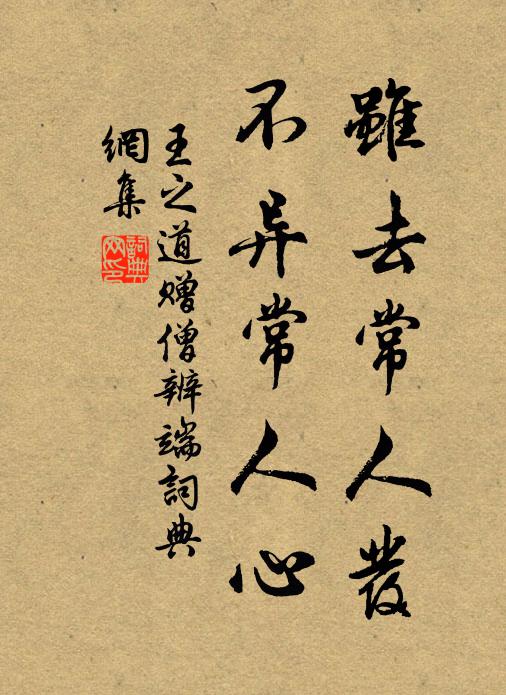 雖去常人發
不异常人心
王之道赠僧辨端詞典
網集
詞典
网印